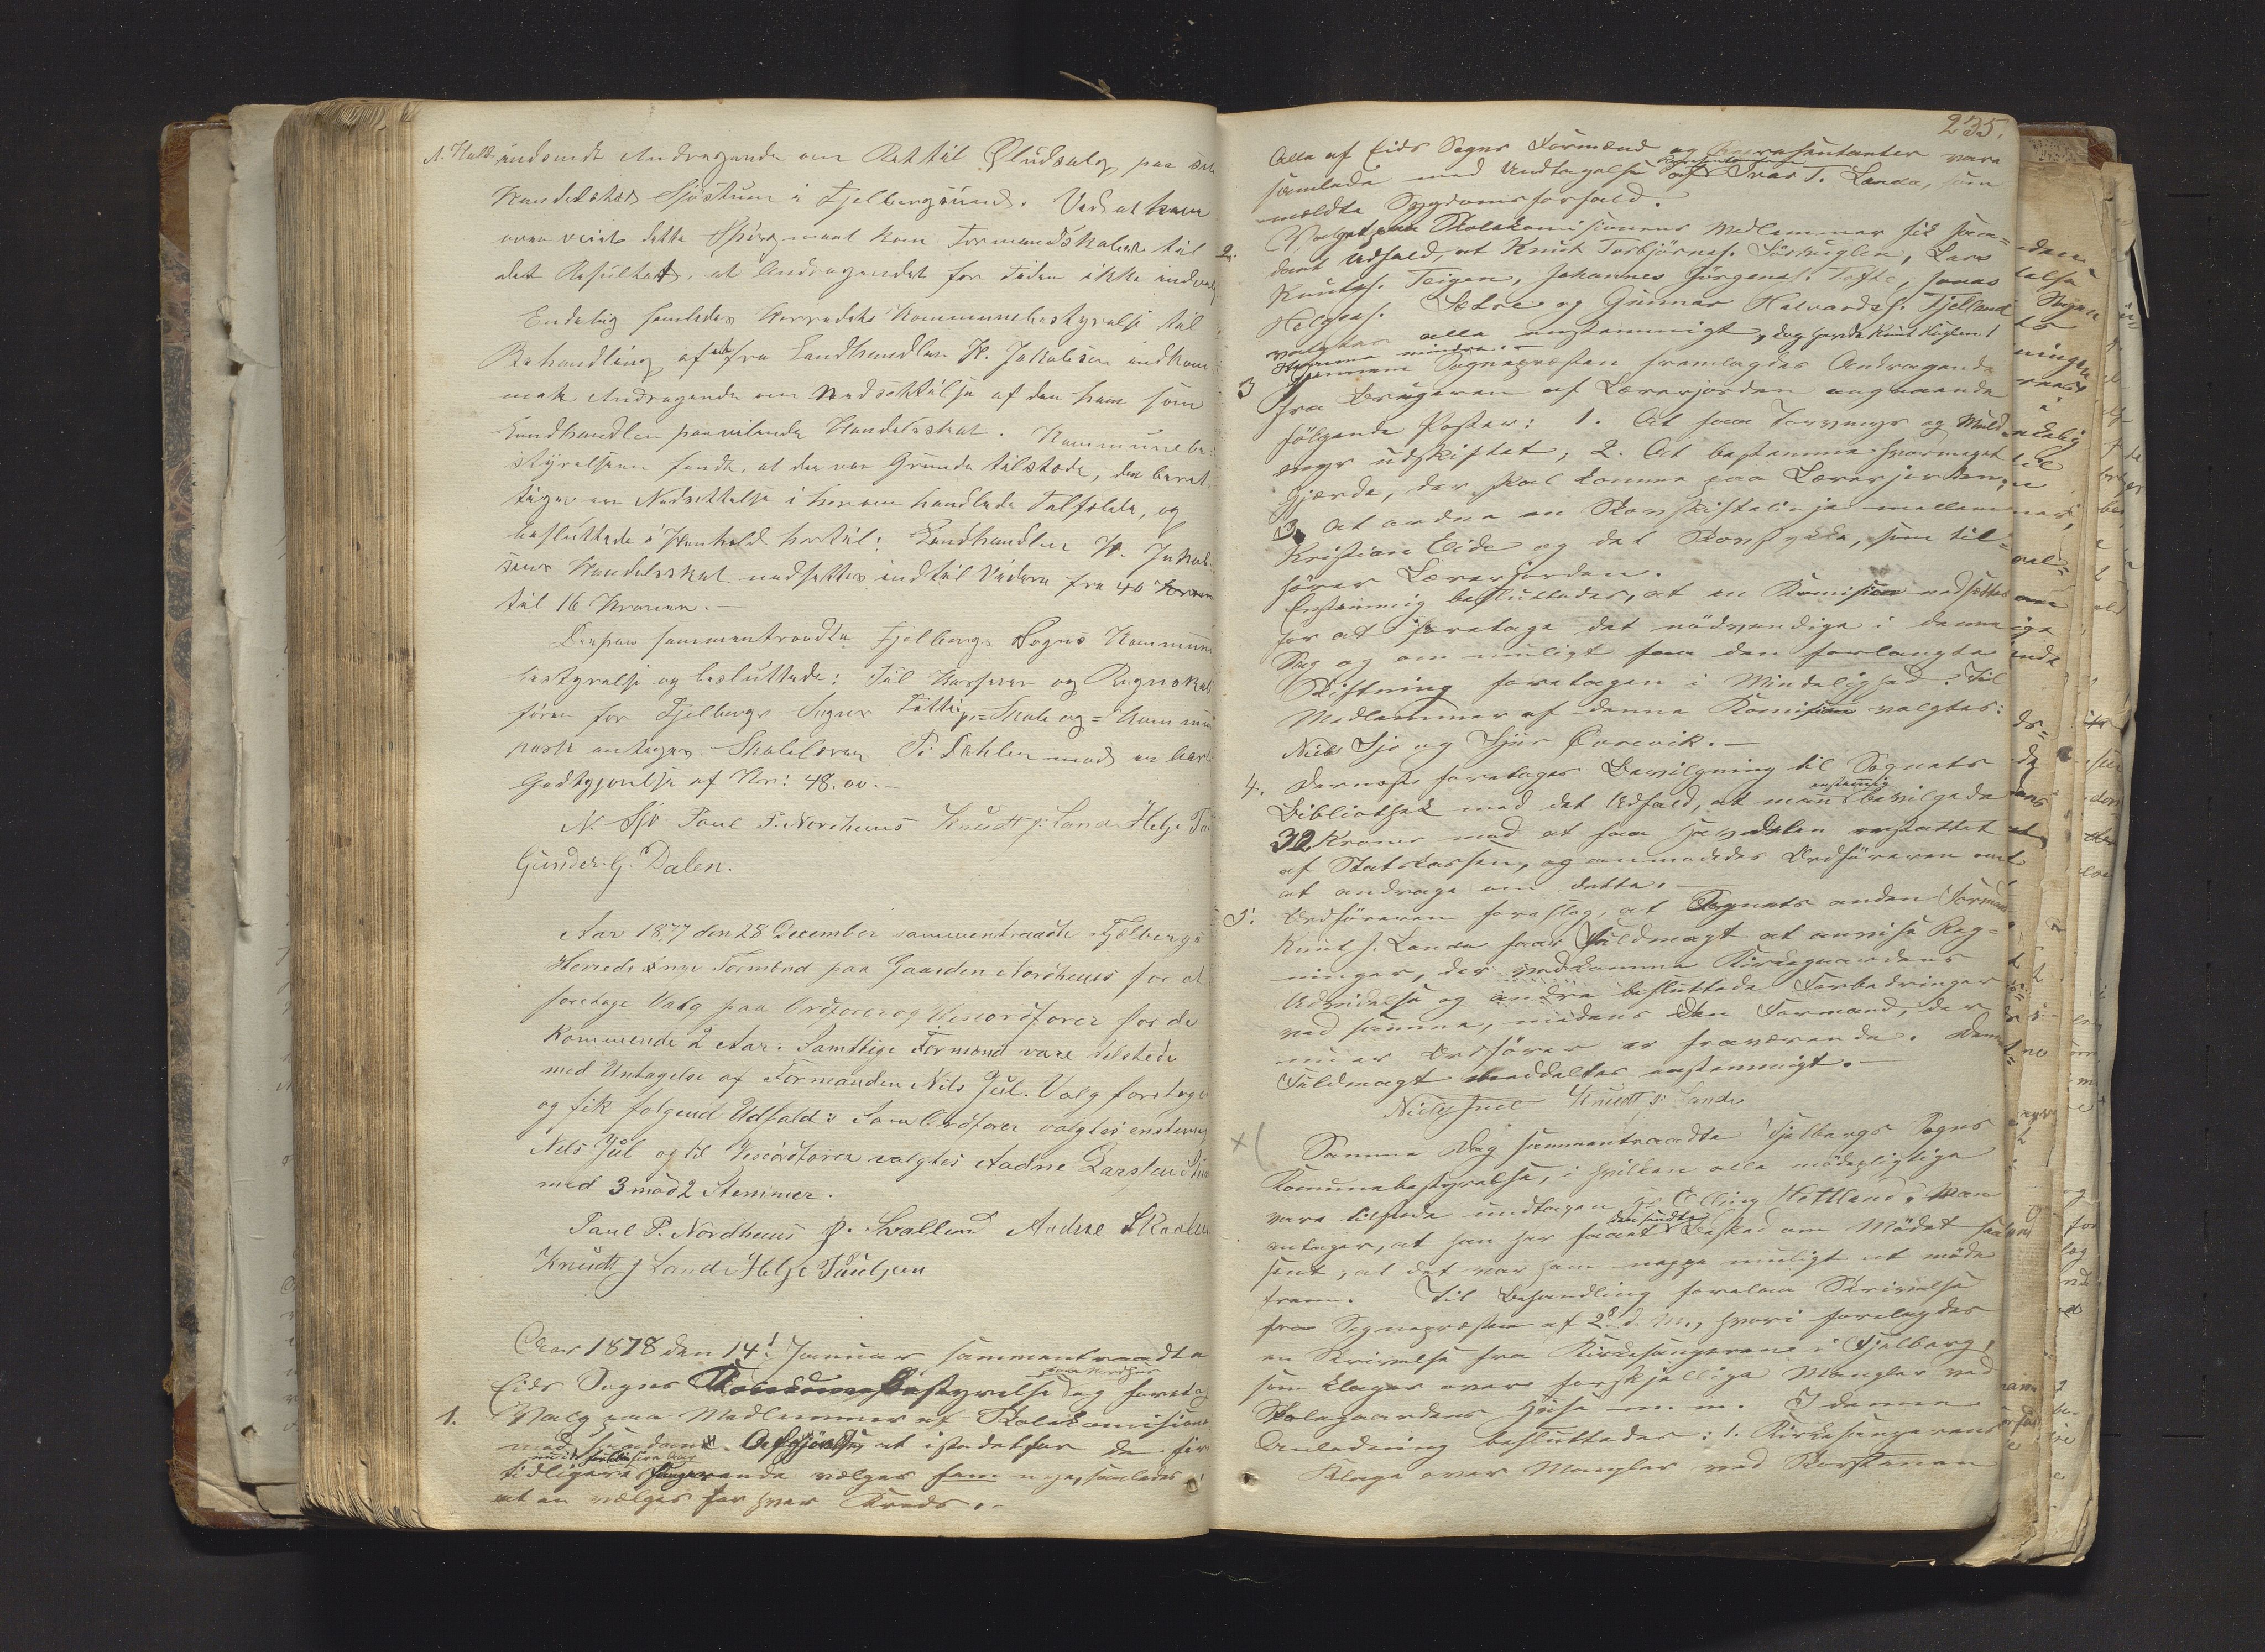 A. Huld indsendt Andragende om Ret til Øludsalg paa sit
Handelssted Sjöstrum i Fjelbergsund. Ved at have
overveiet dette Spörgsmaal kom Formandskabet til
det Resultat, at Andragendet for Tiden ikke
Endelig samledes Herredets Kommunebestyrelse til
Behandling af et fra Landhandler H. Jakobsen indkom-
met Andragende om Nedsettelse af den ham som
Landhandler paavilende Handelsskat. Kommunebe-
styrelsen fandt, at der var Grunde tilstede, der beret-
tiger en Nedsettelse i herom handlede Talfolde, og
besluttede i Henhold hertil: Landhandler H. Jakob-
sens Handelsskat nedsettes indtil Videre fra 40 Kroner
til 16 Kroner. —
Derpaa sammentraadte Fjelbergs Sogns Kommune
bestyrelse og besluttede: Til Kasserer og Regnskabs
förer for Fjelbergs Sogns Fattig-, Skole og Kommune
kasse antages Skolelærer P. Dahlen mod en aarlig
Godtgjørelse af Kr: 48.00. —
N. Sjo Paul P. Nordhuus Knudt J. Landa Helje
Gunder G. Dalen.
Aar 1877 den 28 December sammentraadte Fjelbergs
Herreds nye Formænd paa Gaarden Nordhuus for at
foretage Valg paa Ordfører og Viseordfører for de
Kommende 2 Aar. Samtlige Formænd vare tilstede
med Untagelse af Formanden Nils Jul. Valg foretoges
og fik følgend Udfald: Som Ordfører valgtes enstemig
Nels Jul og til Viseordfører valgtes Aadne Larsen
med 3 mod 2 Stemmer.
Paul P. Nordhuus P. Svalland Aadne Skaalen
Knudt J Landa Helje Paulsen
Aar 1878 den 14d Januar sammentraadte
Eids Sogns bestyrelse paa Nordhus og foretog
1. Valg paa Medlemmer af Skolekomisionen
med saadan Afgjörelse, at istedetfor de fire
nu i de forløbne fire Aar
tidligere fungerende vælges fem nye, saaledes
at en vælges for hver Kreds. —
235.
Alle af Eids Sogns Formænd og Repræsentanter vare
samlede med Undtagelse af Repræsentanten Ivar T. Landa, som
meldte Sygdomsforfald.
2. Valget paa Skolekomisionens Medlemmer fik saa-
dant Udfald, at Knut Torbjörnes. Törhuglen, Lars
Knuts. Teigen, Johannes Jörgens. Tofte, Jonas
Helges. Sætre og Gunnar Halvards. Fjelland
valgtes alle enstemmigt, dog havde Knut Huglen 1
Stemme mindre. —
3 Gjennem Sognepresten fremlagdes Andragende
fra Brugeren af Lærerjorden angaaende
følgende Poster: 1. At faa Torvmyr og Muld-
myr udskiftet, 2. At bestemme hvormeget
Gjærde, der skal komme paa Lærerjorden,
3. At ordne en Skovskiftelinje mellem
Kristian Eide og det Skovstykke, som til-
hörer Lærerjorden.
Enstemmig besluttedes, at en Komision nedsættes
for at foretage det nödvendige i denne
Sag og om muligt faa den forlangte
Skiftning foretagen i Mindelighed. Til
Medlemmer af denne Komision valgtes:
Nils Sjo og Sjur Örevik. —
4. Dernæst foretoges Bevilgning til Sognets
Bibliothek med det Udfald, at man enstemmig bevilgede
32 Kroner mod at faa Halvdelen erstattet
af Statskassen, og anmodedes Ordföreren om
at andrage om dette. —
5. Ordföreren foreslog, at Sognets anden Formand
Knut J. Landa faar Fuldmagt at anvise Reg-
ninger, der vedkomme Kirkegaardens
Udvidelse og andre besluttede Forbedringer
ved samme, medens den Formand, der
nu er Ordförer er fraværende. Denne
Fuldmagt meddeltes enstemmigt. —
Niels Juel Knudt J. Landa
×( Samme Dag sammentraadte Fjelbergs Sogns
Komunebestyrelse, i hvilken alle mödepligtige
vare tilstede undtagen Elling Hetland. Man
antager, at han har faaet den sendte Besked om Mödet saa
sent, at det var ham neppe muligt at möde
frem. Til Behandling forelaa Skrivelse
fra Sognepresten af 2d d. M., hvori forelagdes
en Skrivelse fra Kirkesangeren i Fjelberg,
som klager over forskjellige Mangler ved
Skolegaardens Huse m. m. I denne
Anledning besluttedes: 1. Kirkesangerens
Klage over Mangler ved Skorstenen